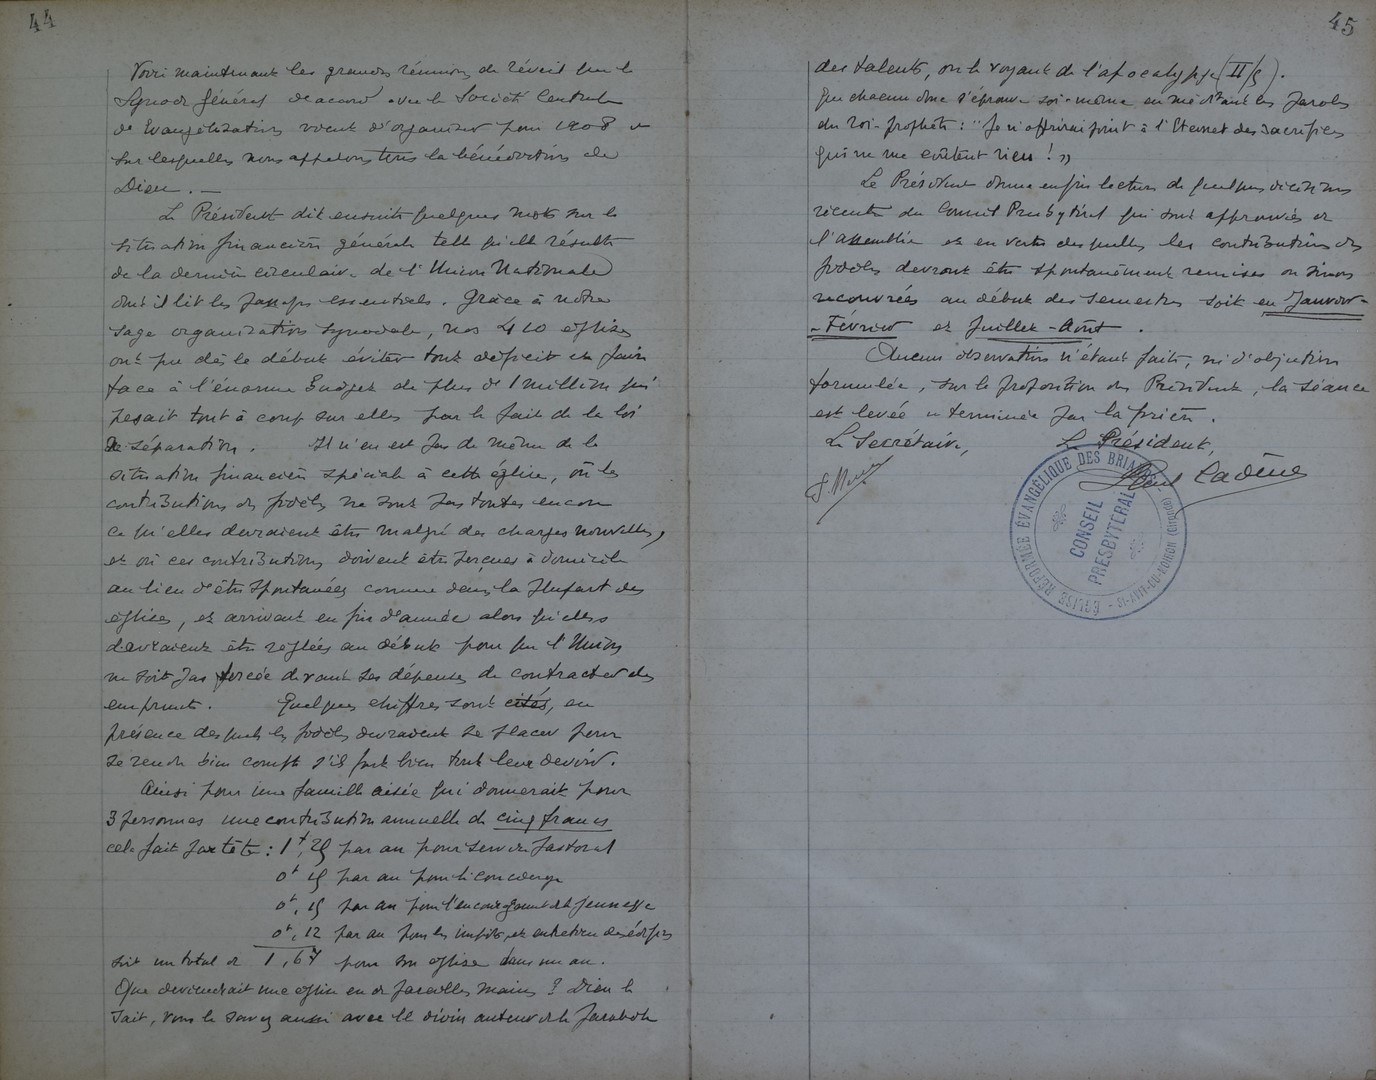 44
Voici maintenant les grandes réunions de réveil que le
Synode général d'accord avec la Société Centrale
de Evangélisation vient d'organiser pour 1908 et
sur lesquelles nous appelons tous la bénédiction de
Dieu. —
Le Président dit ensuite quelques mots sur la
situation financière générale telle qu'elle résulte
de la dernière circulaire de l'Union Nationale
dont il lit les passages essentiels. Grâce à notre
sage organisation synodale, nos 410 églises
ont pu dès le début éviter tout déficit et faire
face à l'énorme Budget de plus d'1 million qui
pesait tout à coup sur elles par le fait de la loi
de séparation. Il n'en est pas de même de la
situation financière spéciale à cette église, où les
contributions des fidèles ne sont pas toutes encore
ce qu'elles devraient être malgré des charges nouvelles,
et où ces contributions doivent être perçues à domicile
au lieu d'être spontanées comme dans la plupart des
églises, et arrivent en fin d'année alors qu'elles
devraient être réglées au début pour que l'Union
ne soit pas forcée devant ses dépenses de contracter des
emprunts. Quelques chiffres sont cités, en
présence desquels les fidèles devraient se placer pour
se rendre bien compte s'ils font bien tout leur devoir.
Ainsi pour une famille aisée qui donnerait pour
3 personnes une contribution annuelle de cinq francs
cela fait par tête : 1f, 25 par an pour service pastoral
0f 15 par an pour le concierge
0f, 15 par an pour l'encouragement de la jeunesse
0f, 12 par an pour les impôts et entretien des édifices
soit un total de 1,67 pour son église dans un an.
Que deviendrait une église en de pareilles mains ? Dieu le
sait, vous le savez aussi avec le divin auteur de la parabole
45
des talents, ou le voyant de l'apocalypse (II/5).
Que chacun donc s'éprouve soi-même en méditant les paroles
du roi-prophète : "Je n'offrirai point à l'Eternel des sacrifices
qui ne me coûtent rien ! »
Le Président donne enfin lecture de quelques décisions
récentes du Conseil Presbytéral qui sont approuvées de
l'assemblée et en vertu desquelles les contributions des
fidèles devront être spontanément remises ou sinon
recouvrées au début des semestres soit en Janvier-
-Février et Juillet-Août.
Aucune observation n'étant faite, ni d'objection
formulée, sur la proposition du Président, la séance
est levée et terminée par la prière.
Le Secrétaire, Le Président,
Paul Cadène
ÉGLISE RÉFORMÉE ÉVANGÉLIQUE DES BRIANDS
CONSEIL
PRESBYTÉRAL
ST-AVIT-DU-MOIRON (Gironde)